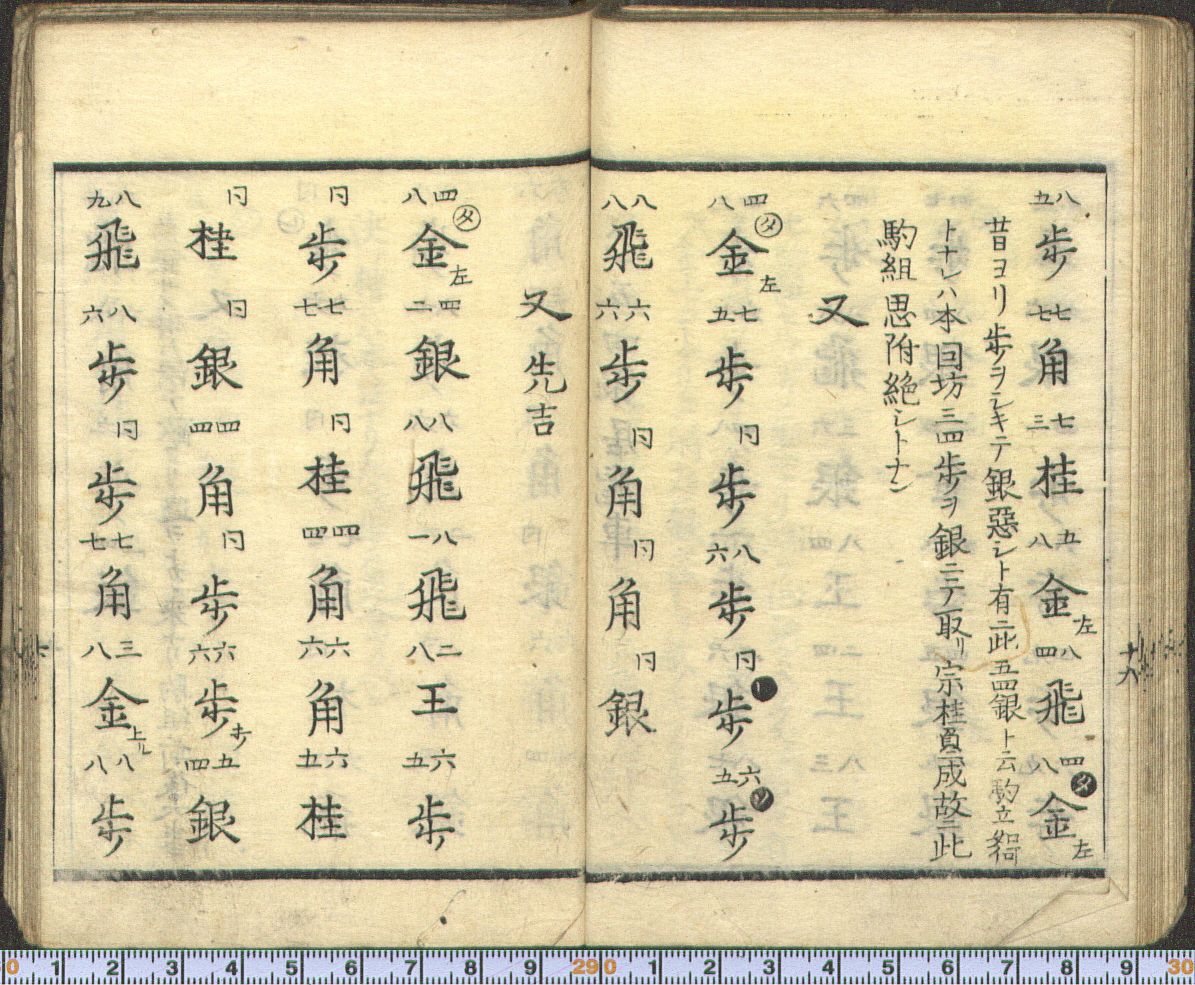 八五歩 七七角 七三桂 五八金左 八四飛 四八金タ左
昔ヨリ歩ヲシキテ銀惡シト有ニ此五四銀ト云駒立
トナレハ本因坊三四歩ヲ銀ニテ取リ宗桂負ニ成故ニ此
駒組思附絶シトナン
又
四八金タ左 七五歩 同歩 八六歩 同歩 六五歩
八八飛 六六歩 同角 同角 同銀
又 先吉
四八金タ左 四二銀 八八飛 八一飛 二八王 六五歩
同歩 七七角 同桂 四四角 六六角 六五桂
同桂 同銀 四四角 同歩 六六歩 五四銀
八九飛 八六歩 同歩 七七角 三八金上ル 八八歩
十六
0 1 2 3 4 5 6 7 8 9 29 0 1 2 3 4 5 6 7 8 9 30